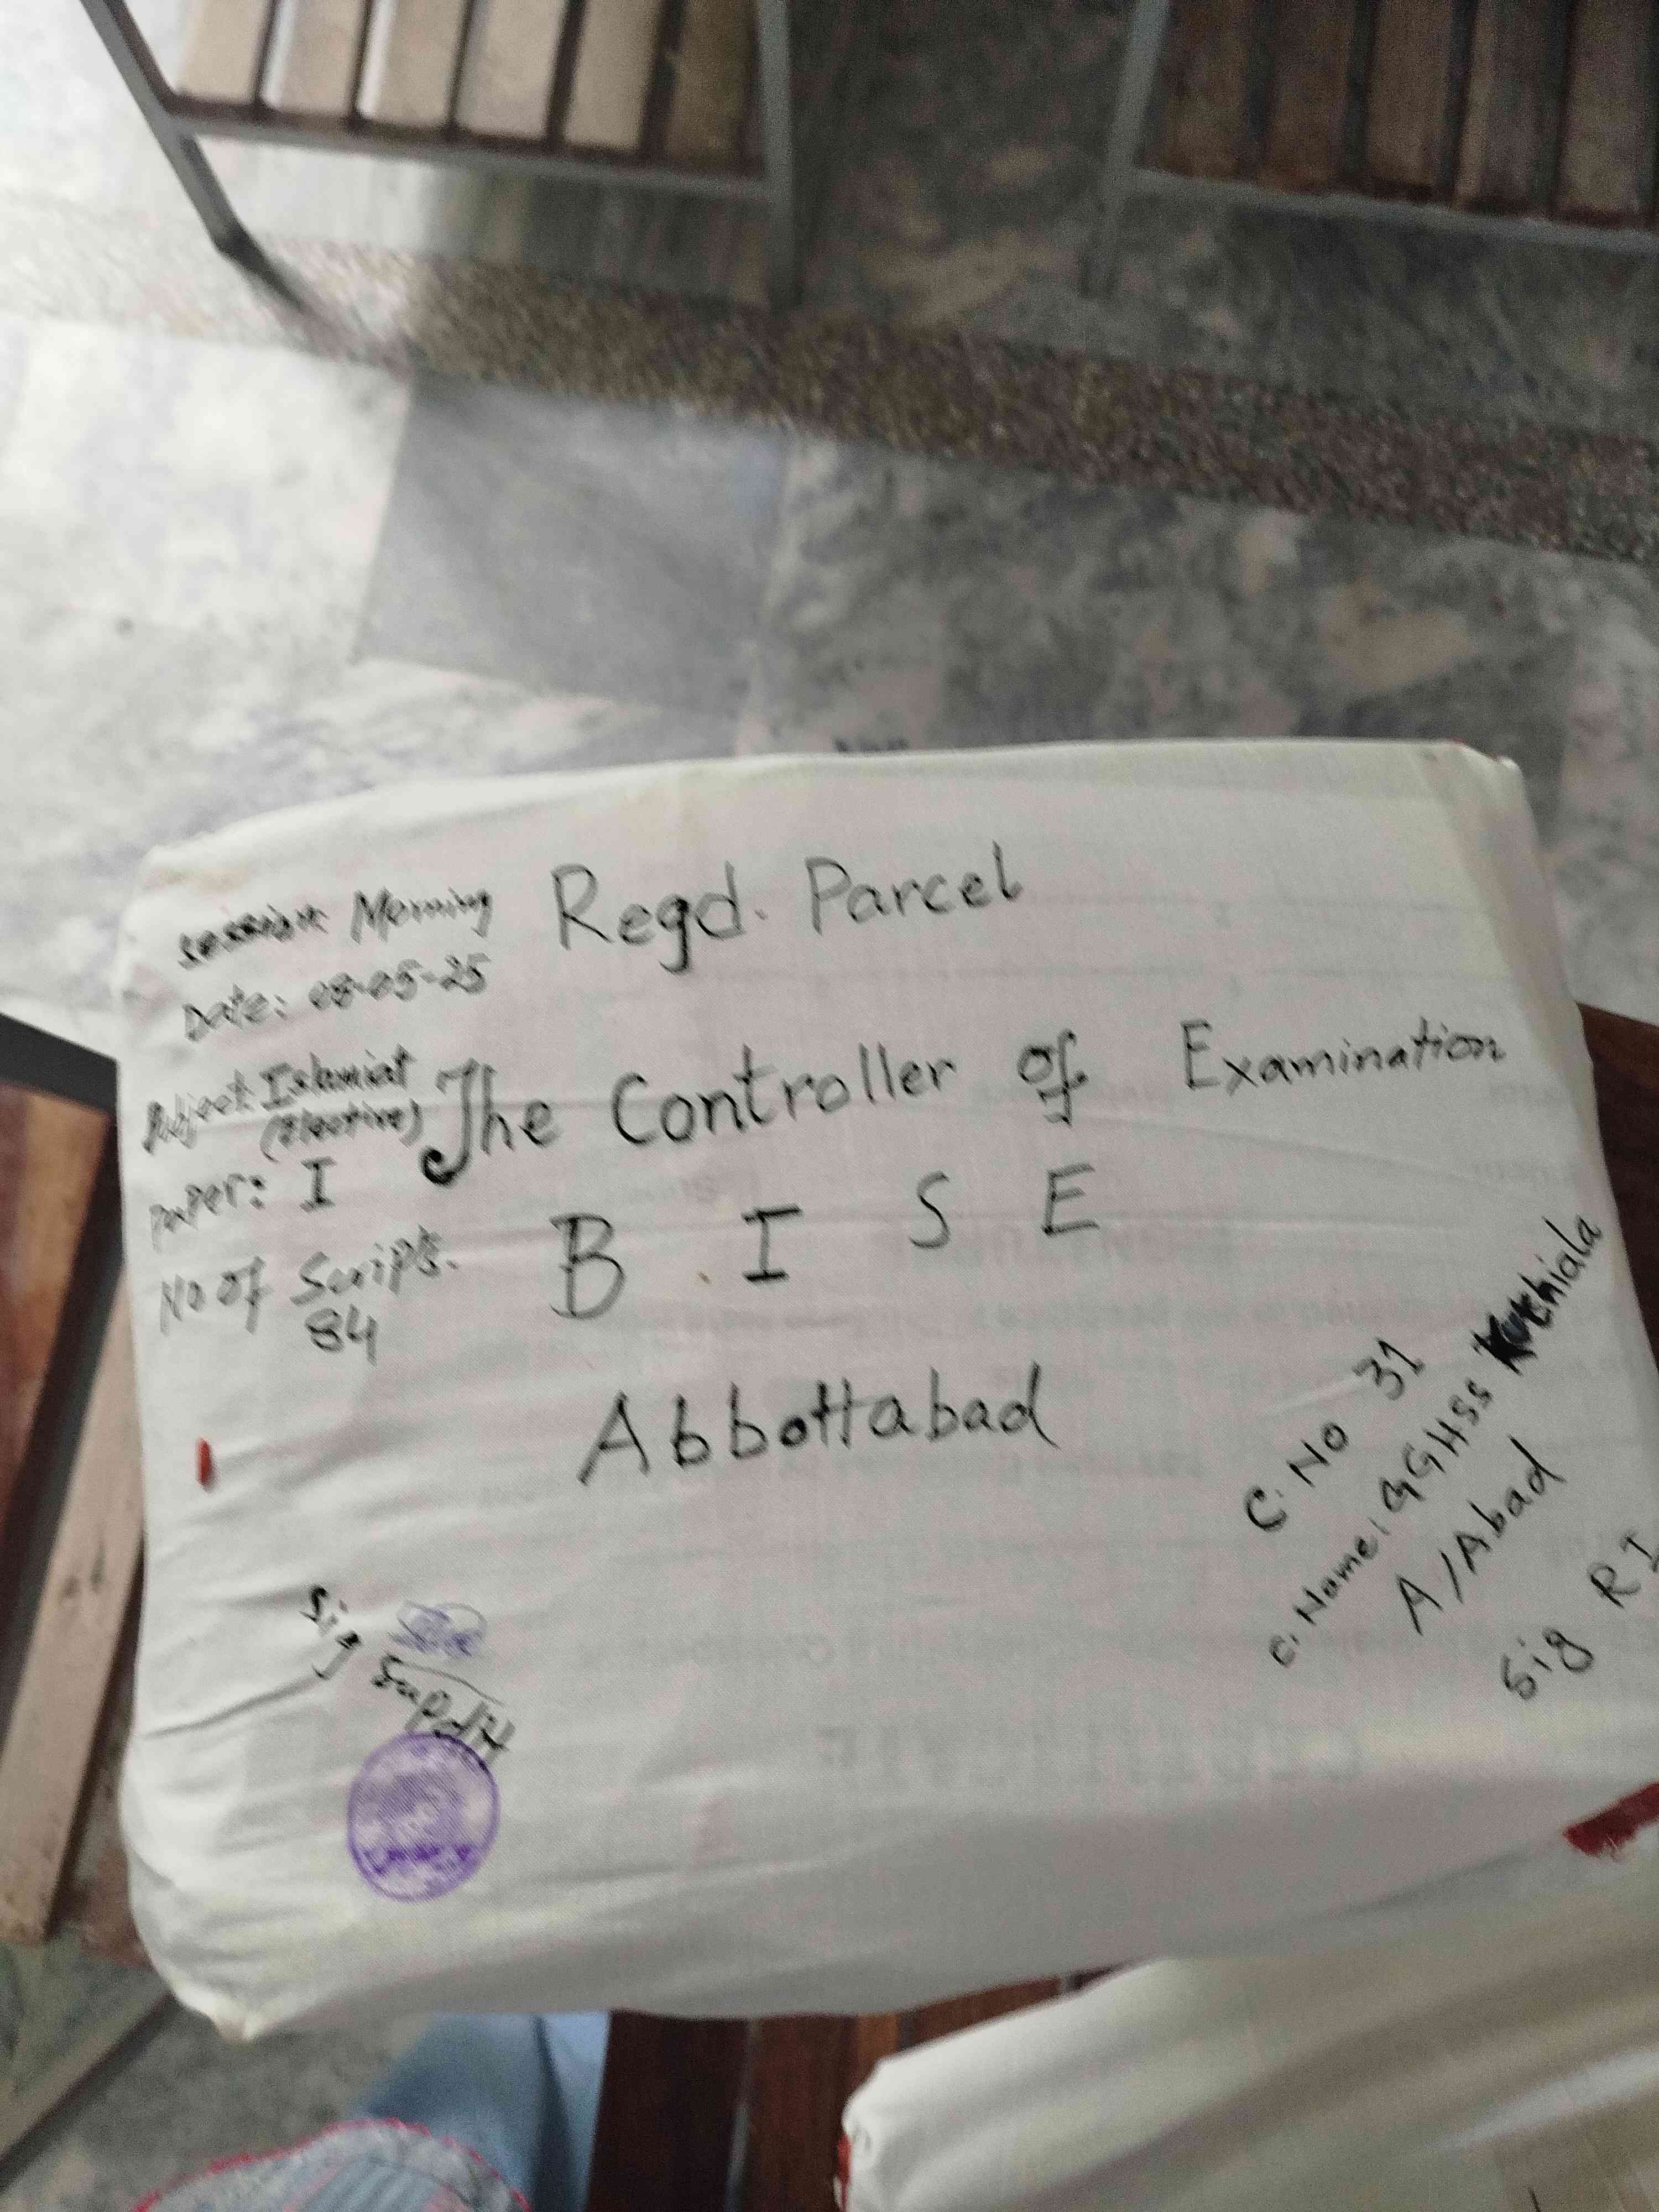 Regd. Parcel
Session Morning
Date: 08-05-25
Subject: Islamiat
(Elective)
Paper: I
No of Scripts.
84
The Controller of Examination
B I S E
Abbottabad
C. No 31
C. Name: GGHSS Kuthiala
A/Abad
Sig RI
Sig
Supdtt